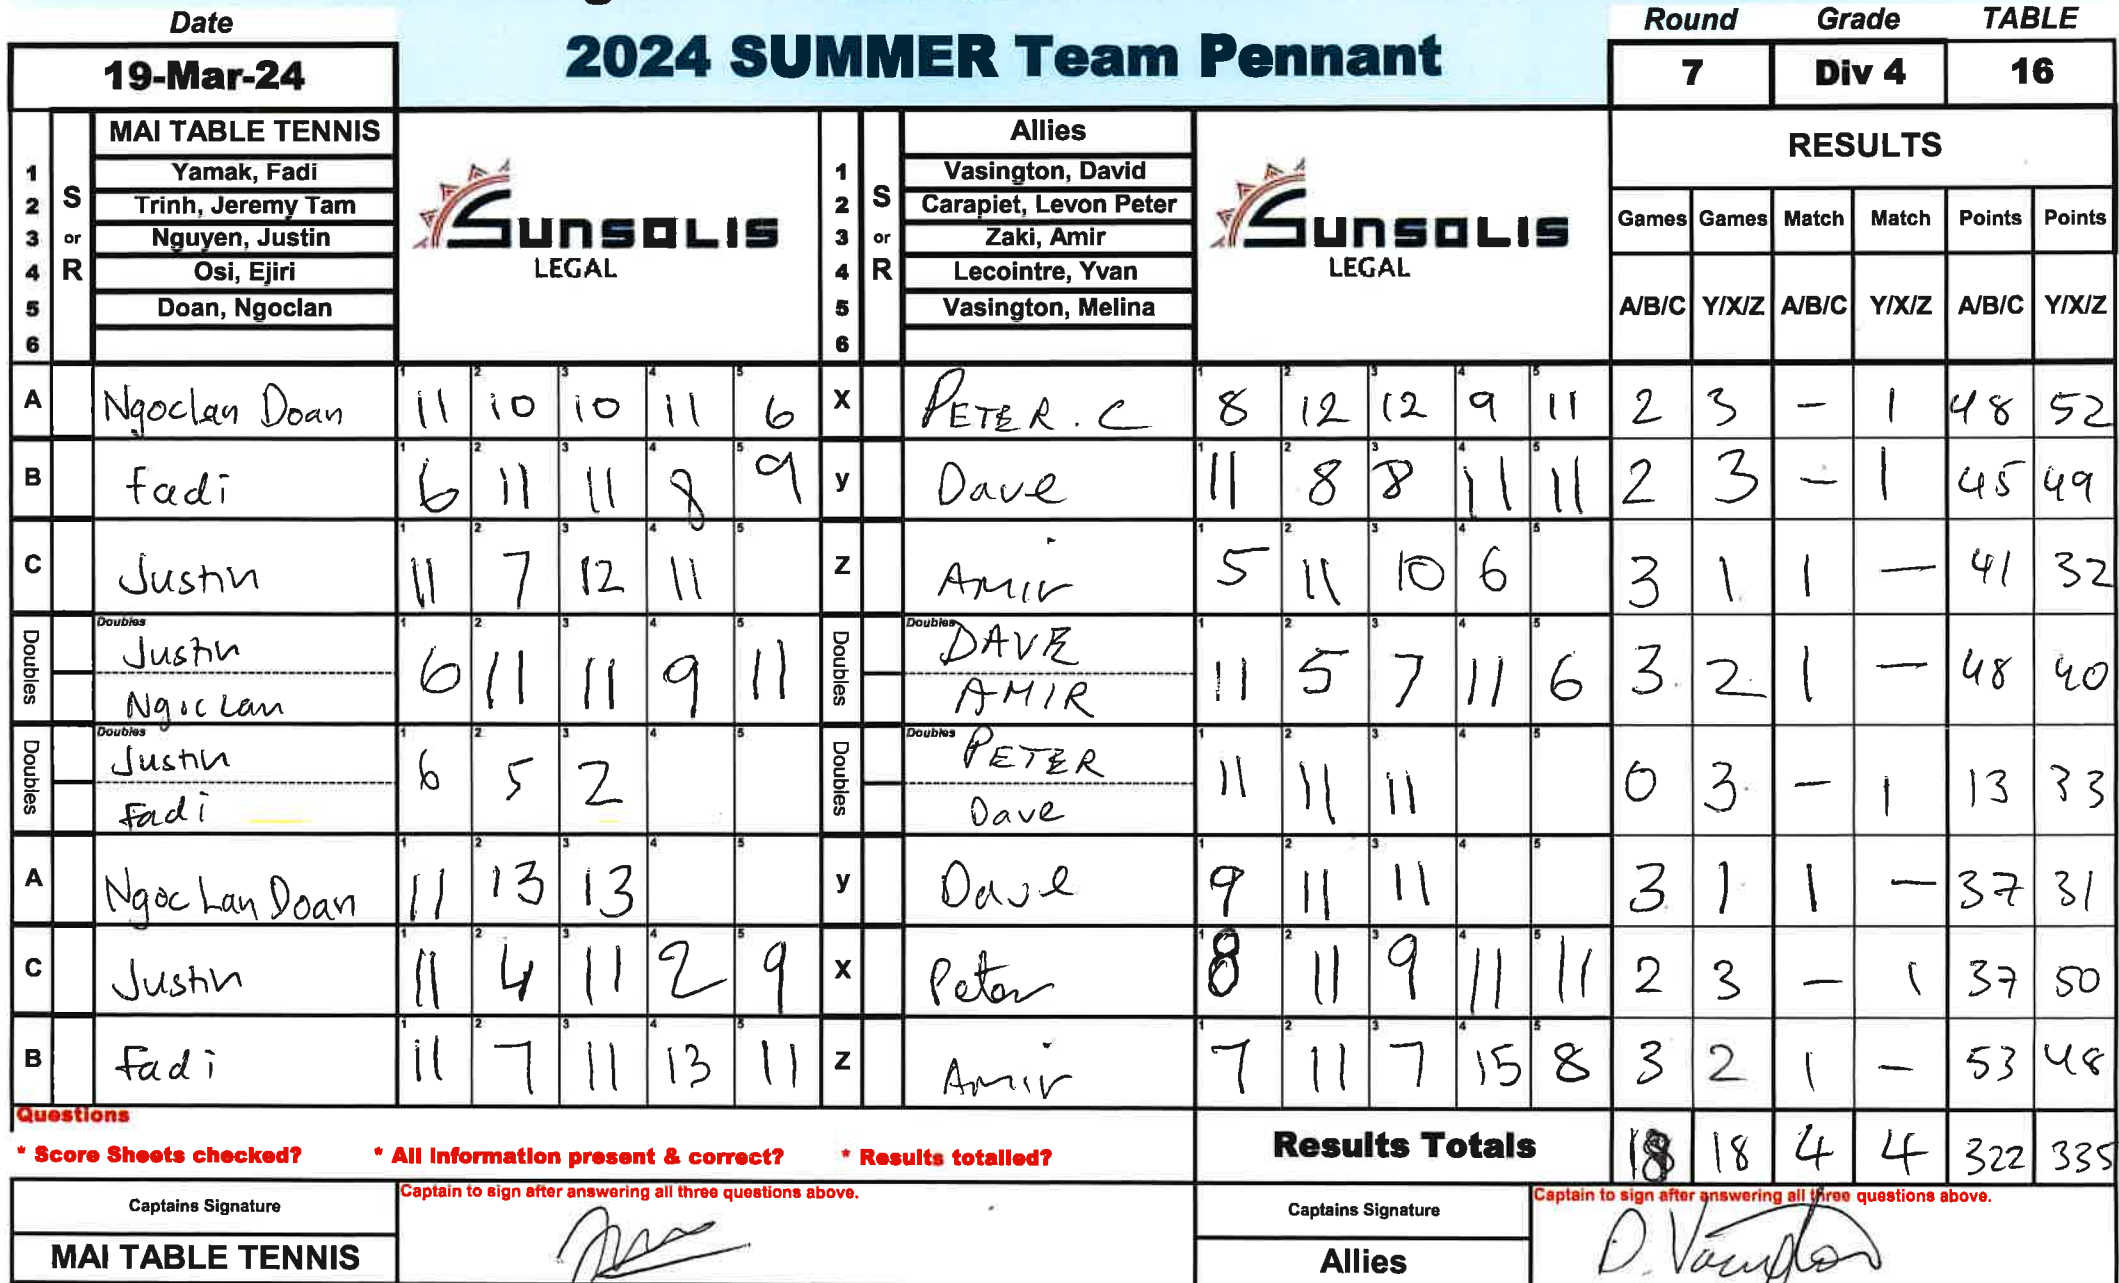 Date
19-Mar-24
2024 SUMMER Team Pennant
Round Grade TABLE
7 Div 4 16
MAI TABLE TENNIS
1 Yamak, Fadi
2 Trinh, Jeremy Tam
3 Nguyen, Justin
4 Osi, Ejiri
5 Doan, Ngoclan
6
S or R
SUNSOLIS
LEGAL
Allies
1 Vasington, David
2 Carapiet, Levon Peter
3 Zaki, Amir
4 Lecointre, Yvan
5 Vasington, Melina
6
S or R
SUNSOLIS
LEGAL
RESULTS
Games Games Match Match Points Points
A/B/C Y/X/Z A/B/C Y/X/Z A/B/C Y/X/Z
A Ngoclan Doan 11 10 10 11 6 X PETER. C 8 12 12 9 11 2 3 - 1 48 52
B Fadi 6 11 11 8 9 y Dave 11 8 8 11 11 2 3 - 1 45 49
C Justin 11 7 12 11 Z Amir 5 11 10 6 3 1 1 - 41 32
Doubles Justin 6 11 11 9 11 Doubles DAVE 11 5 7 11 6 3 2 1 - 48 40
Ngoc Lan AMIR
Doubles Justin 6 5 2 Doubles PETER 11 11 11 0 3 - 1 13 33
Fadi Dave
A Ngoc Lan Doan 11 13 13 y Dave 9 11 11 3 1 1 - 37 31
C Justin 11 4 11 2 9 X Peter 8 11 9 11 11 2 3 - 1 37 50
B Fadi 11 7 11 13 11 Z Amir 7 11 7 15 8 3 2 1 - 53 48
Questions
* Score Sheets checked? * All Information present & correct? * Results totalled?
Results Totals 18 18 4 4 322 335
Captains Signature
Captain to sign after answering all three questions above.
MAI TABLE TENNIS
Captains Signature
Captain to sign after answering all three questions above.
Allies